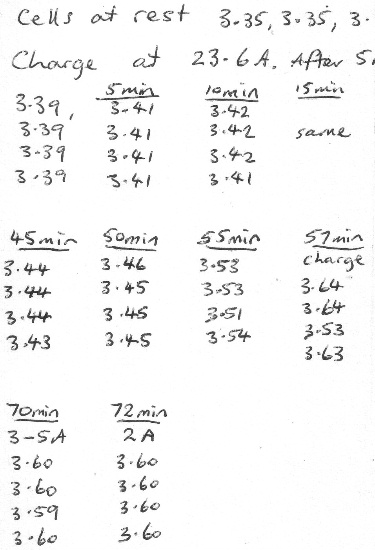 Cells at rest 3.35, 3.35, 3.
Charge at 23.6A. After 5.
5min 10min 15min
3.39, 3.41 3.42
3.39 3.41 3.42 same
3.39 3.41 3.42
3.39 3.41 3.41
45min 50min 55min 57min
3.44 3.46 3.53 charge
3.44 3.45 3.53 3.64
3.44 3.45 3.51 3.64
3.43 3.45 3.54 3.53
3.63
70min 72min
3-5A 2A
3.60 3.60
3.60 3.60
3.59 3.60
3.60 3.60